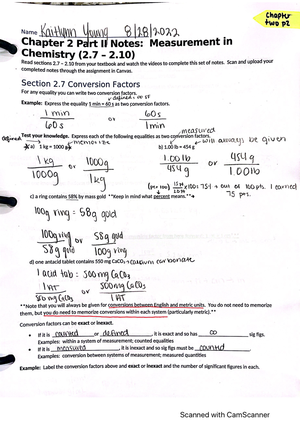 Name Kaitlynn Young 8/28/2022
Chapter two p2
Chapter 2 Part II Notes: Measurement in
Chemistry (2.7 – 2.10)
Read sections 2.7 – 2.10 from your textbook and watch the videos to complete this set of notes. Scan and upload your
completed notes through the assignment in Canvas.
Section 2.7 Conversion Factors
For any equality you can write two conversion factors.
Example: Express the equality 1 min = 60 s as two conversion factors.
1 min
60 s
or
60s
1min
measured
defined
Test your knowledge. Express each of the following equalities as two conversion factors.
memorize
will always be given
a) 1 kg = 1000 g
b) 1.00 lb = 454 g
1 kg
1000g
or
1000g
1kg
1.00 lb
454 g
or
454 g
1.00lb
c) a ring contains 58% by mass gold **Keep in mind what percent means.**
100g ring = 58g gold
100g ring
58g gold
or
58g gold
100g ring
d) one antacid tablet contains 550 mg CaCO₃ calcium carbonate
1 acid tab = 500 mg CaCO₃
1 AT
500 mg CaCO₃
or
500mg CaCO₃
1 AT
**Note that you will always be given for conversions between English and metric units. You do not need to memorize
them, but you do need to memorize conversions within each system (particularly metric).**
Conversion factors can be exact or inexact.
• If it is counted or defined, it is exact and so has ∞ sig figs.
Examples: within a system of measurement; counted equalities
• If it is measured, it is inexact and so sig figs must be counted
Examples: conversion between systems of measurement; measured quantities
Example: Label the conversion factors above and exact or inexact and the number of significant figures in each.
Scanned with CamScanner